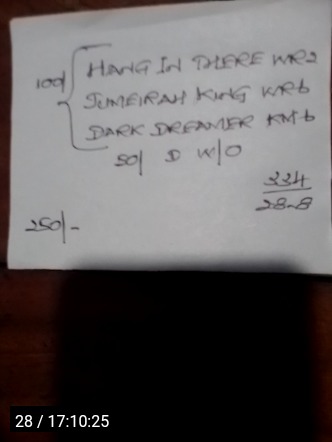 100/ HANG IN THERE WR2
JUMEIRAH KING WR6
DARK DREAMER KM6
50/ D W/O
334
28-8
250/-
28 / 17:10:25